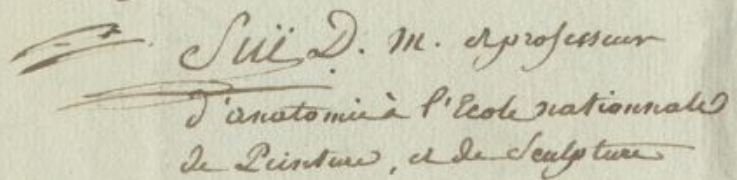 Süë D. M. et professeur
d'anatomie à l'Ecole nationnale
de Peinture, et de Sculpture